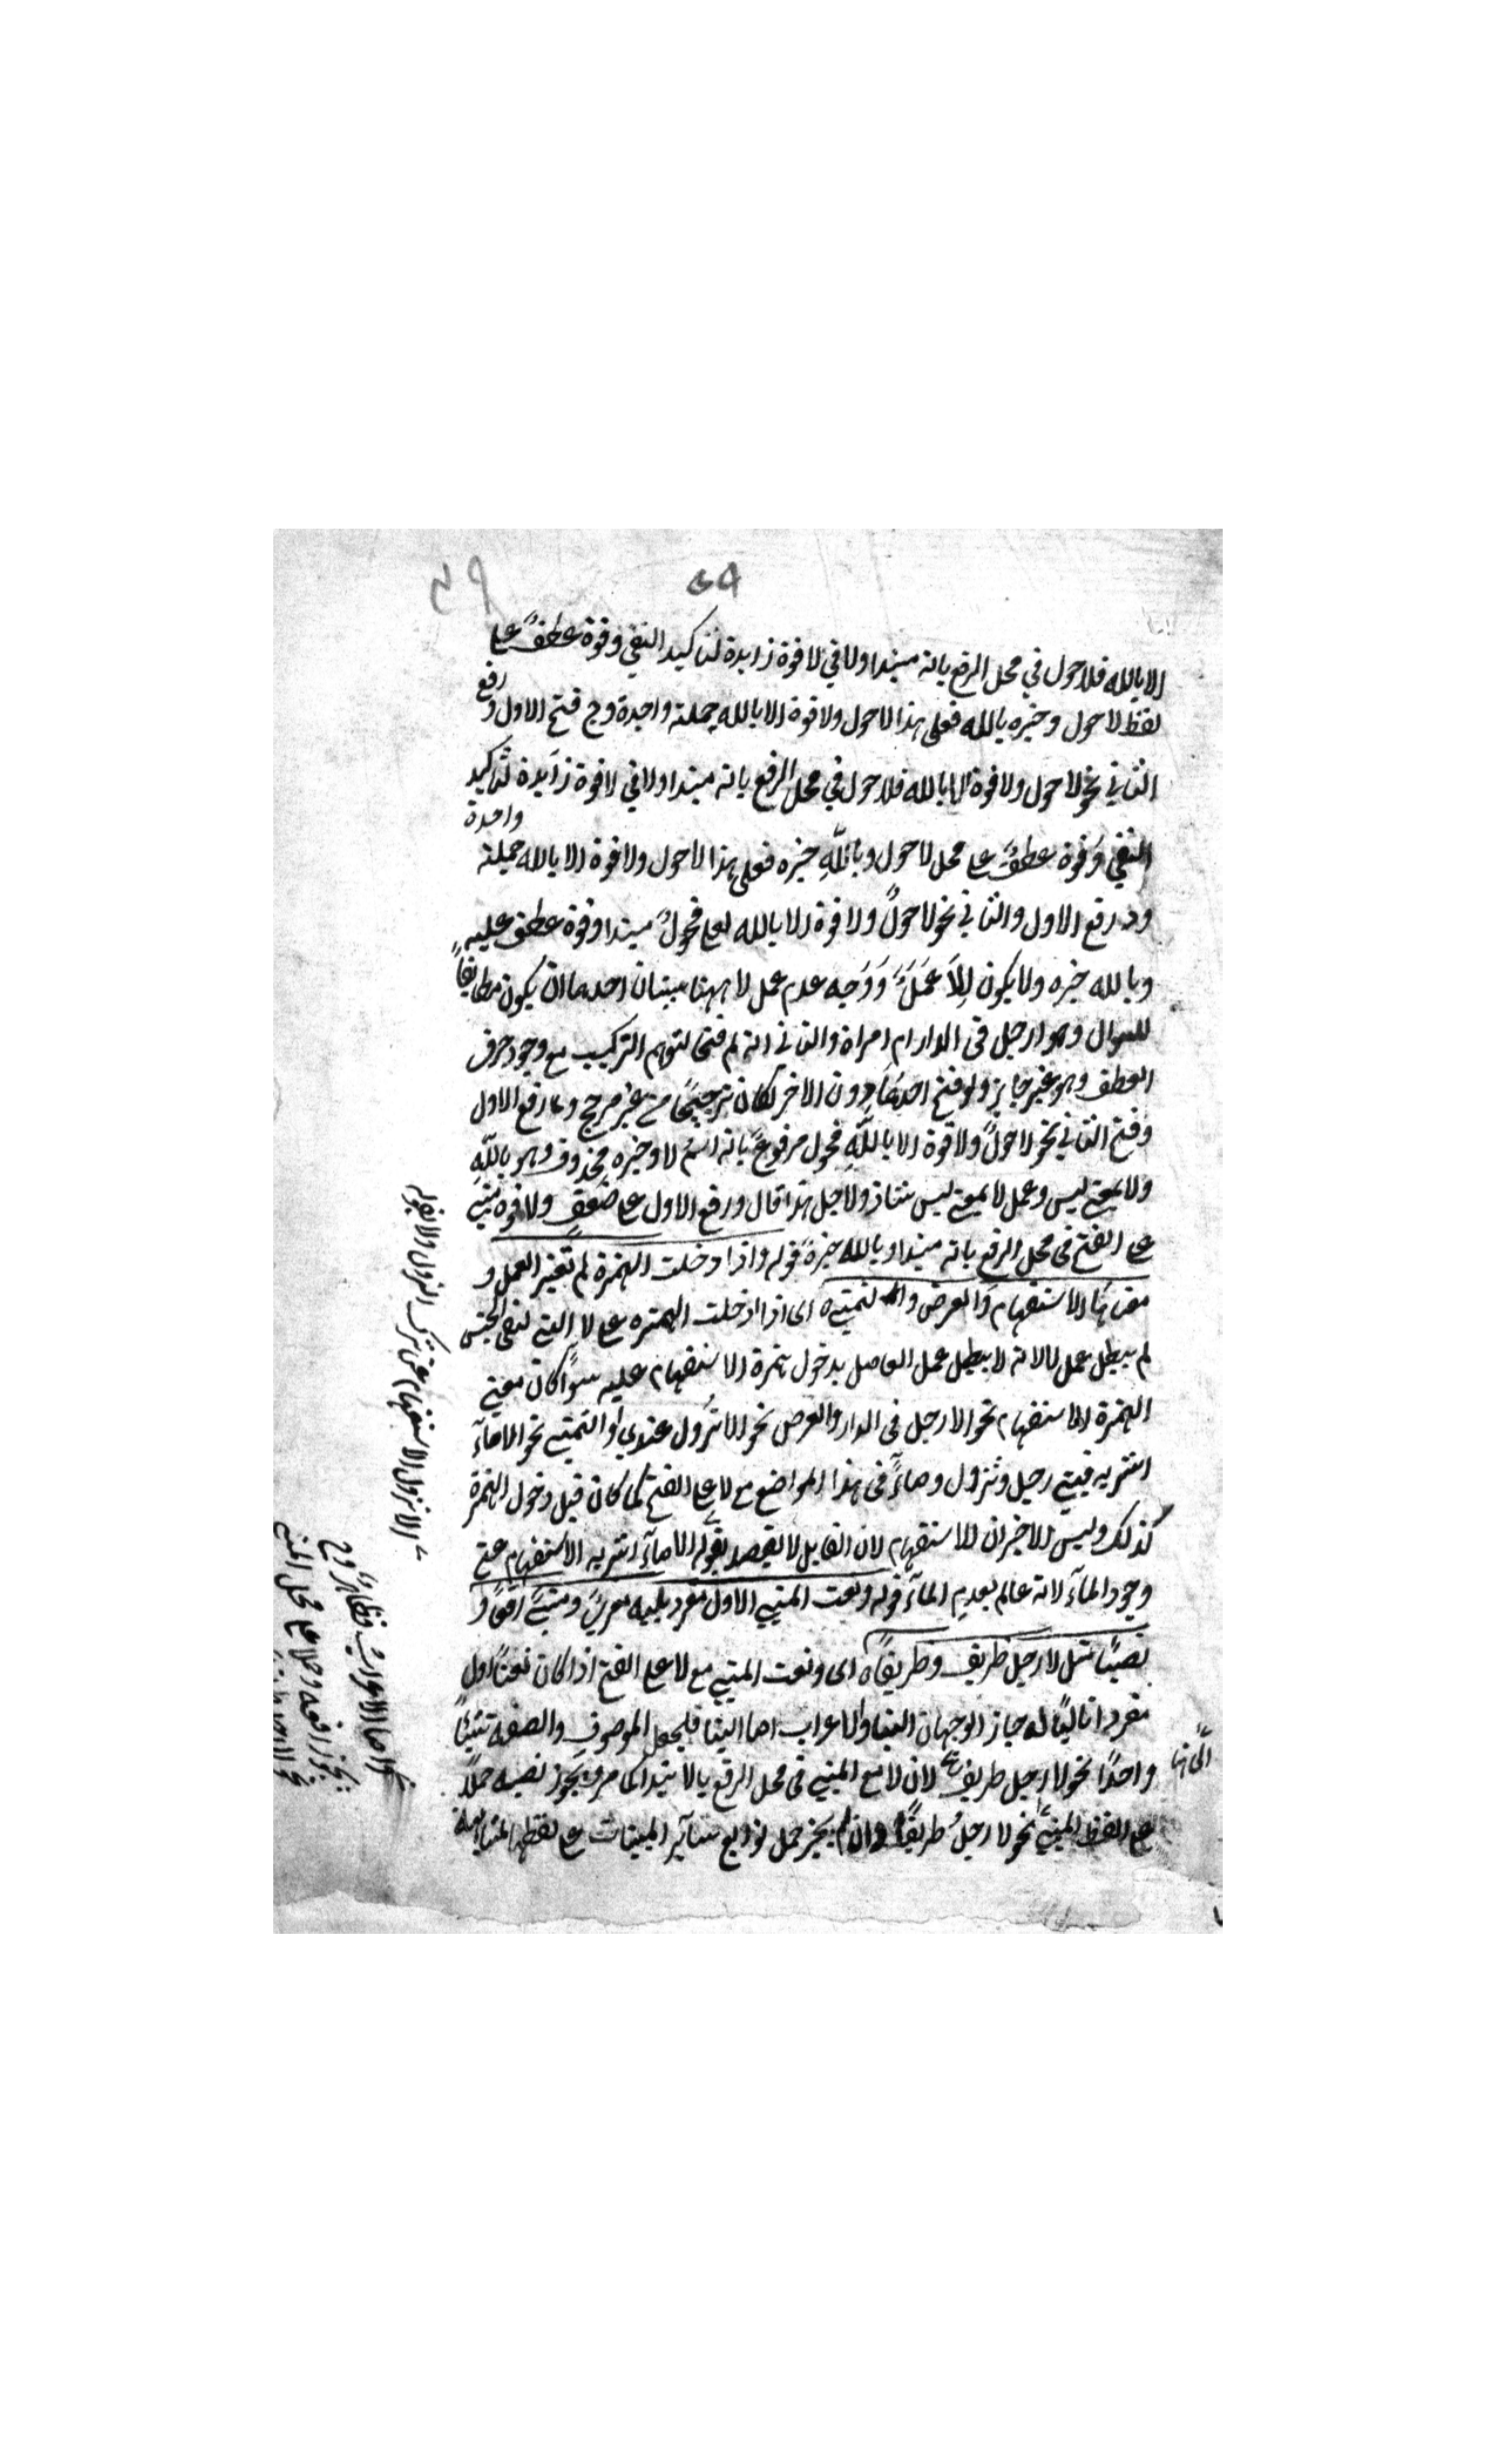 ٤٩
٥٩
الا بالله فلا حول في محل الرفع بانه مبتدا ولا في لا قوة زايدة لتاكيد النفي وقوة عطفً على
لفظ لا حول وخبره بالله فعلى هذا لا حول ولا قوة الا بالله جملة واحدة وج فتح الاول ورفع
الثاني نحو لا حول ولا قوة الا بالله فلا حول في محل الرفع بانه مبتدا ولا في لا قوة زايدة لتاكيد
النفي وقوة عطفً على محل لا حول وبالله خبره فعلى هذا لا حول ولا قوة الا بالله جملة واحدة
ود رفع الاول والثاني نحو لا حولٌ ولا قوة الا بالله فحولٌ مبتدا وقوة عطف عليه
وبالله خبره ولا يكون لِلاَ عَمَلٌ وَوَجه عدم عمل لا ههنا سببان احدهما ان يكون مطابقاً
للسوال وهو ارجل في الدار ام امراة والثاني انه لم فتحا لتوهم التركيب مع وجود حرف
العطف وهو غير جايز ولو فتح احدهما دون الاخر لكان ترجيحًا من غير مرجح وه رفع الاول
وفتح الثاني نحو لا حولٌ ولا قوة الا بالله فحول مرفوع بانه اسم لا وخبره محذوف وهو بالله
ولا بمعنى ليس وعمل لا بمعنى ليس شاذ ولاجل هذا قال ورفع الاول على ضعفٍ ولا قوة مبني
على الفتح في محل الرفع بانه مبتدا وبالله خبره قوله واذا دخلت الهمزة لم تغير العمل و
معناها الاستفهام والعرض والتمني اى اذا دخلت الهمزه على لا التي لنفي الجنس
لم يبطل عمل لا لانه لا يبطل عمل العامل بدخول همزة الاستفهام عليه سواً كان معنى
الهمزة الاستفهام نحو الا رجل في الدار والعرض نحو الا نزول عندي او التمني نحو الا ماءَ
اشربه فبني رجل ونزول وماءً في هذا المواضع مع لا على الفتح كما كان قبل دخول الهمزة
كذلك وليس الاخيران للاستفهام لان القايل لا يقصد بقوله الا ماءَ اشربه الاستفهام عن
وجود الماء لانه عالم بعدم الماء قوله ونعت المبني الاول مفرد يليه معربً ومبنيً رفعًا و
نصبًا مثل لا رجل ظريف وظريفًا اى ونعت المبني مع لا على الفتح اذا كان نعتًا اول
مفردا تاليًا له جاز الوجهان البنا والاعراب اما البنا فليجعل الموصوف والصفه شيئًا
واحدًا نحو لا رجل ظريف لان لا مع المبني في محل الرفع بالابتدا كما مر ويجوز نصبه حملاً
على لفظ المبني نحو لا رجلَ ظريفًا وان لم يجز حمل توابع ساير المبنيات على لفظها
الا نزول الاستفهام عن ترك النزول ولا يقول
واما الاعراب فظاهر وح
يجوز رفعه حملا على محل المبني